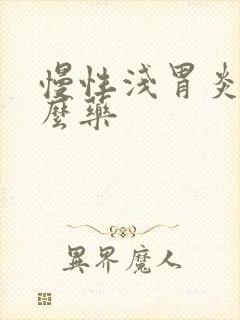 慢性浅胃炎
麼藥
異界魔人